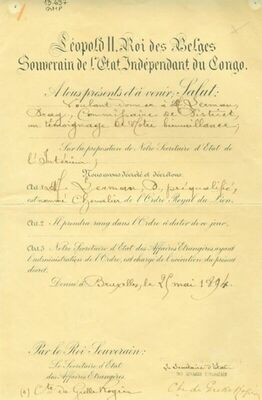 Léopold II, Roi des Belges
Souverain de l'Etat Indépendant du Congo.
A tous présents et à venir, Salut:
Voulant donner à M. Lerman,
Drag., Commissaire de District,
un témoignage de Notre bienveillance;
Sur la proposition de Notre Secrétaire d'Etat de
l'Intérieur;
Nous avons décrété et décrétons:
Art. 1er M. Lerman D. préqualifié,
est nommé Chevalier de l'Ordre Royal du Lion.
Art. 2 Il prendra rang dans l'Ordre à dater de ce jour.
Art. 3 Notre Secrétaire d'Etat des Affaires Etrangères, ayant
l'administration de l'Ordre, est chargé de l'exécution du présent
décret.
Donné à Bruxelles, le 25 mai 1894.
Par le Roi Souverain:
Le Secrétaire d'Etat
des Affaires Etrangères
(s) Cte de Grelle Rogier
Le Secrétaire d'Etat